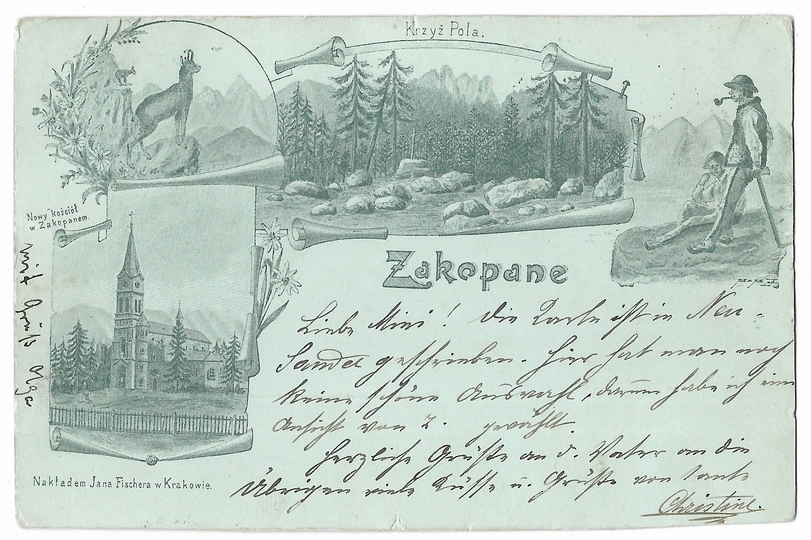 Krzyż Pola.
Nowy kościół
w Zakopanem.
Zakopane
Liebe Mini! Die Karte ist in Neu-
Sandec geschrieben. Hier hat man noch
keine schöne Auswahl, darum habe ich eine
Ansicht von Z. gewählt.
Herzliche Grüße an d. Vater an die
Übrigen viele Küsse u. Grüße von Tante
Christine.
mit Gruß Olga
Nakładem Jana Fischera w Krakowie.